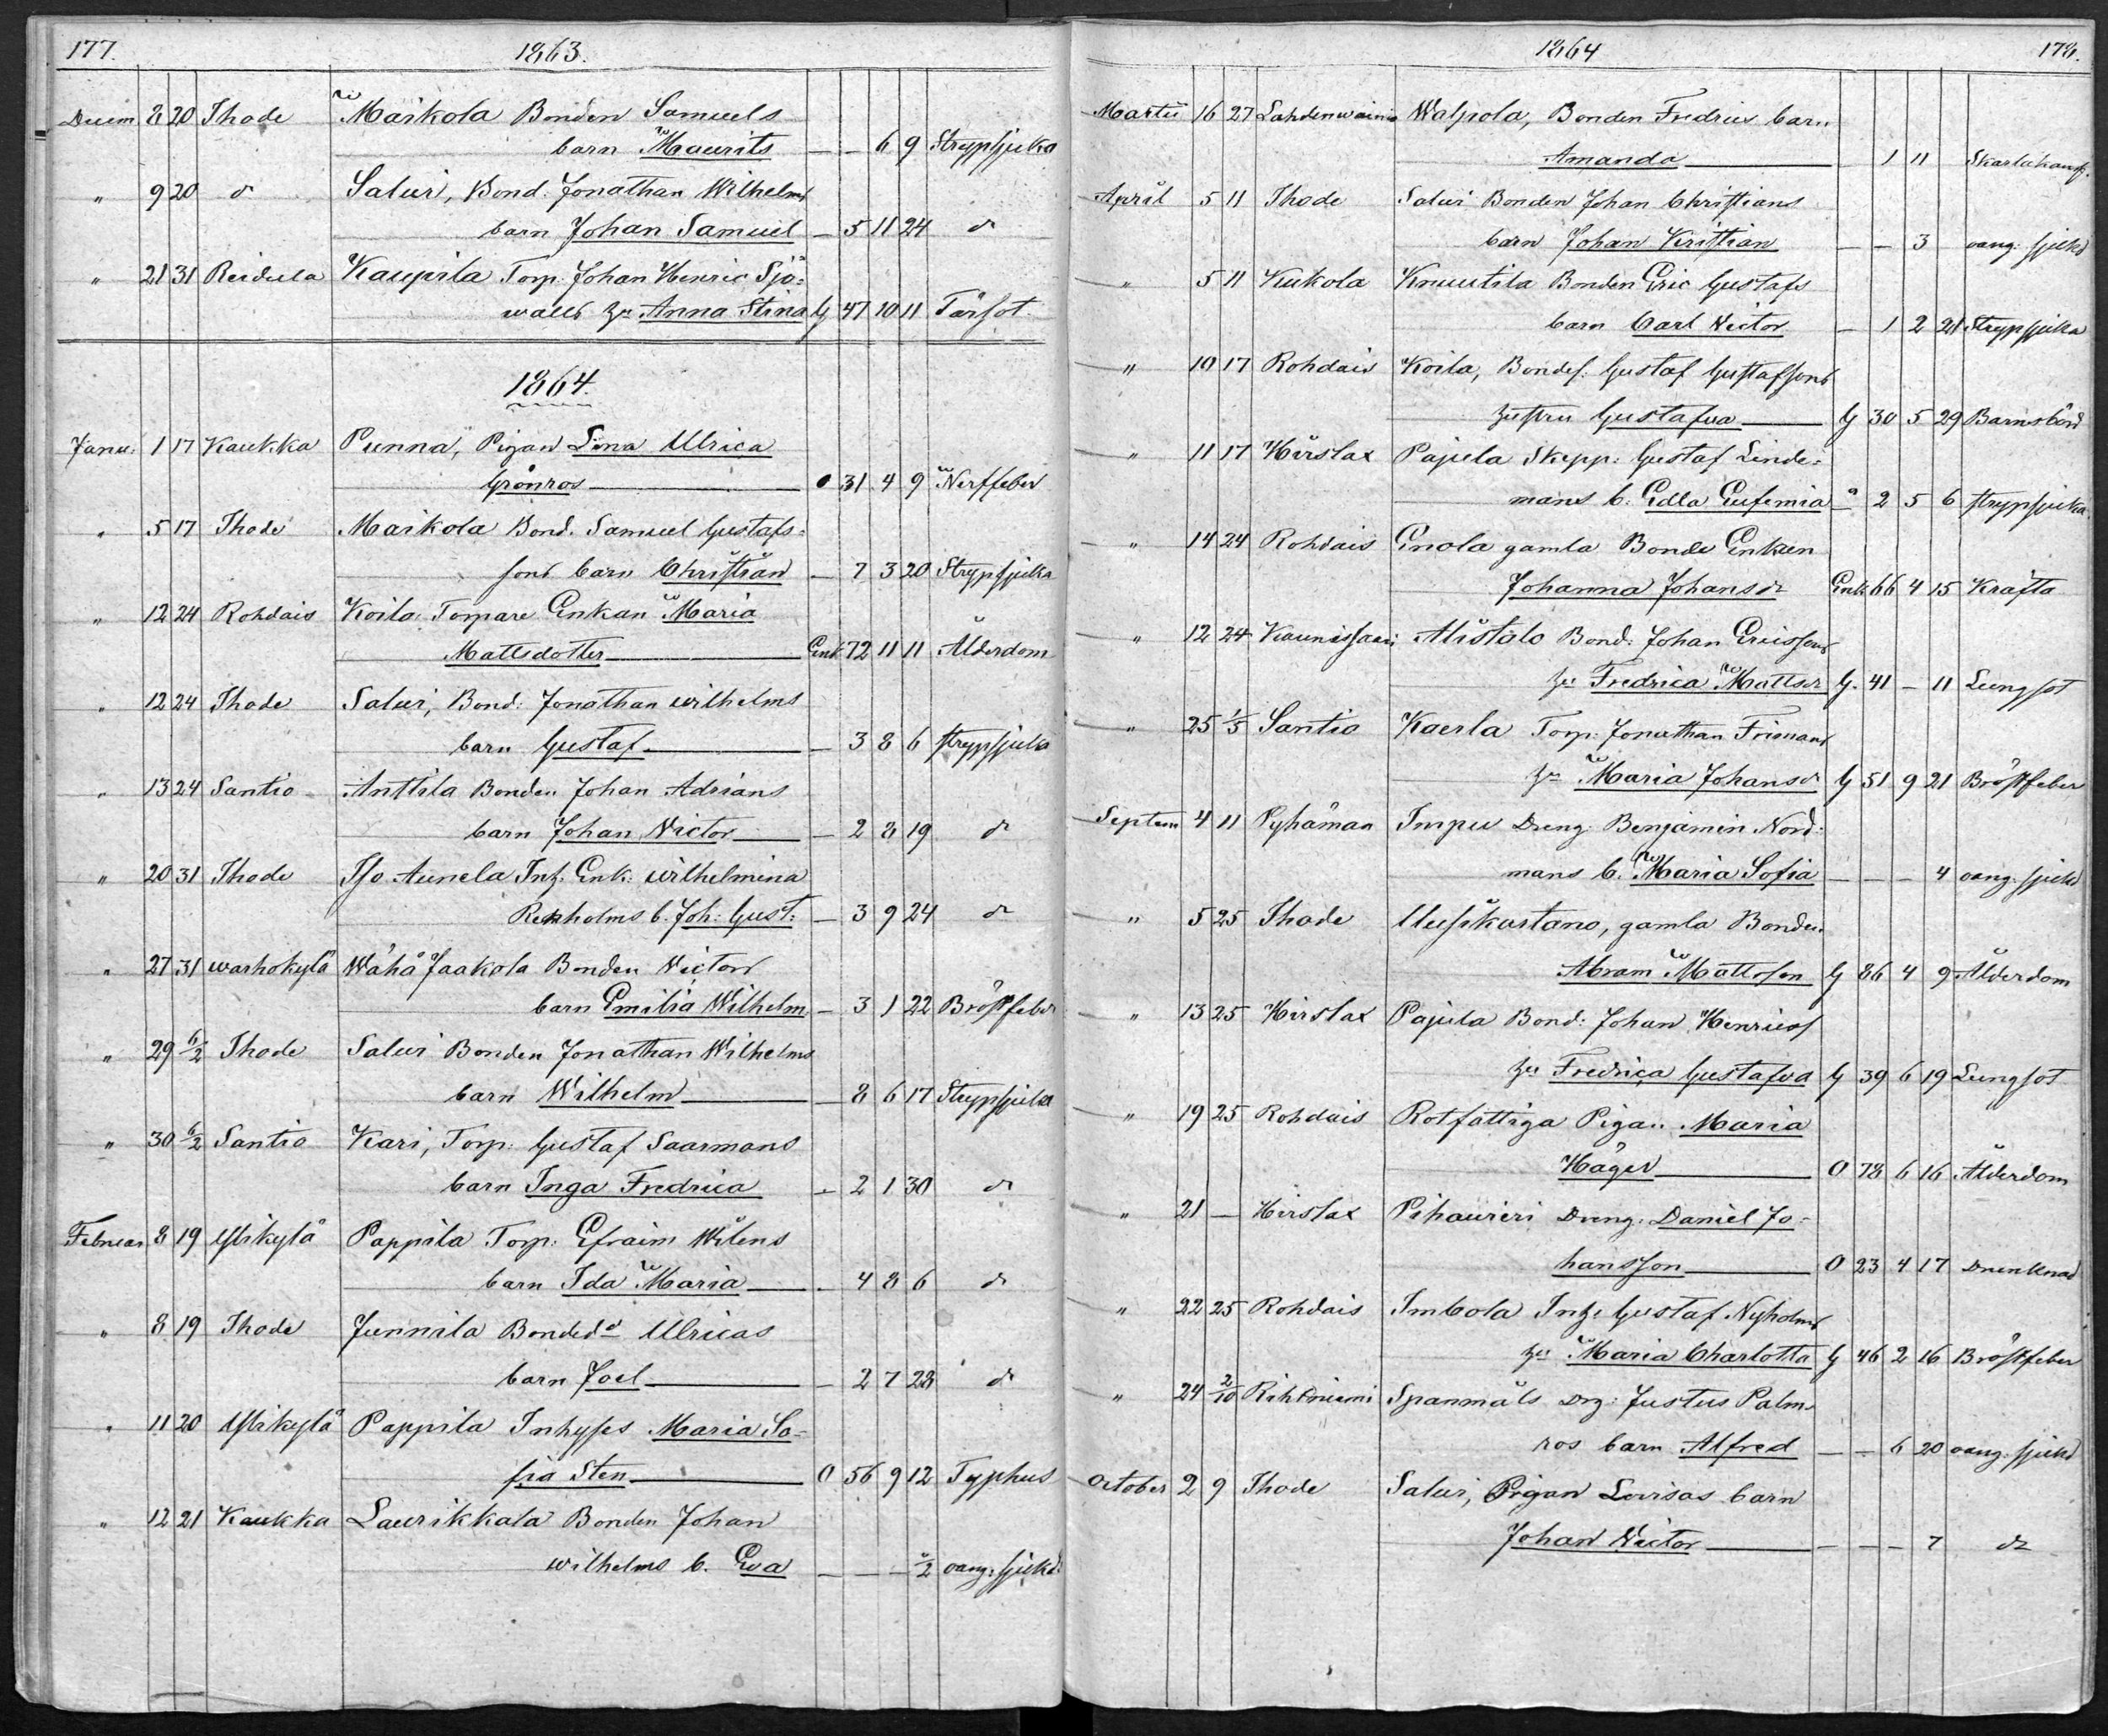 177. 1863.
Decem 8 20 Ihode Maikola Bonden Samuels
barn Maurits — — 6 9 Strypsjuka
" 9 20 d:o Saluri, Bond. Jonathan Wilhelms
barn Johan Samuel — 5 11 24 d:o
" 21 31 Reidula Kaupila Torp. Johan Henric Sjö=
walls hu Anna Stina G 47 10 11 Tärsot
1864.
Janu. 1 17 Kaukka Punna, Pigan Lina Ulrica
Grönros O 31 4 9 Nerffeber
" 5 17 Ihode Maikola Bond. Samuel Gustafs=
sons barn Christian — 7 3 20 Strypsjuka
" 12 24 Rohdais Koila Torpare Enkan Maria
Mattsdotter Enk 72 11 11 Ålderdom
" 12 24 Ihode Saluri, Bond: Jonathan Wilhelms
barn Gustaf — 3 8 6 strypsjuka
" 13 24 Santio Anttila Bonden Johan Adrians
barn Johan Victor — 2 8 19 d:o
" 20 31 Ihode Iso Aunela Inh. Enk. Wilhelmina
Renholms b. Joh: Gust: — 3 9 24 d:o
" 27 31 Warhokylä Wähä Jaakola Bonden Victors
barn Emilia Wilhelm. — 3 1 22 Bröstfeber
" 29 6/2 Ihode Saluri Bonden Jonathan Wilhelms
barn Wilhelm — 8 6 17 Strypsjuka
" 30 6/2 Santio Kari, Torp. Gustaf Saarmans
barn Inga Fredrica — 2 1 30 d:o
Februar 8 19 Ylikylä Pappila Torp. Efraim Wilens
barn Ida Maria — 4 8 6 d:o
" 8 19 Ihode Junnila Bonded:r Ulricas
barn Joel — 2 7 28 d:o
" 11 20 Ylikylä Pappila Inhyses Maria So=
fia Sten O 56 9 12 Typhus
" 12 21 Kaukka Laurikkala Bonden Johan
Wilhelms b. Eva — — — ½ oang: sjukd:
1864 178.
Martii 16 27 Lahdenwainio Walpola, Bonden Fredrics barn
Amanda 1 11 Skarlakansf.
April 5 11 Ihode Saluri Bonden Johan Christians
barn Johan Kristian — — 3 oang: sjukd
" 5 11 Kukola Knuutila Bonden Eric Gustafs
barn Carl Victor — 1 2 21 Strypsjuka
" 10 17 Rohdais Koila, Bondes. Gustaf Gustafssons
hustru Gustafva G 30 5 29 Barnsbörd
" 11 17 Hirslax Pajula Skepp: Gustaf Linde=
mans b. Edla Eufemia — 2 5 6 strypsjuka
" 14 24 Rohdais Enola gamla Bonde Enkan
Johanna Johansd:r Enk 66 4 15 Kräfta
" 12 24 Kaunissaari Alistalo Bond: Johan Ericssons
hu Fredrica Mattsd:r G. 41 — 11 Lungsot
" 25 1/5 Santio Kaerla Torp. Jonathan Frimans
hu Maria Johansd:r G 51 9 21 Bröstfeber
Septem 4 11 Pyhämaa Impu Dreng: Benjamin Nord:
mans b. Maria Sofia — — — 4 oang: sjukd
" 5 25 Ihode Uusikartano, gamla Bonden
Abram Mattsson G 86 4 9 Ålderdom
" 13 25 Hirslax Pajula Bond: Johan Henricss
hu Fredrica Gustafva G 39 6 19 Lungsot
" 19 25 Rohdais Rotfattiga Pigan Maria
Häger O 78 6 16 Ålderdom
" 21 — Hirslax Pihauriri Dreng. Daniel Jo=
hansson O 23 4 17 Drunknad
" 22 25 Rohdais Imbola Inh: Gustaf Nyholms
hu Maria Charlotta G 46 2 16 Bröstfeber
" 24 2/10 Rihtniemi Spanmäls Drg: Justus Palm=
ros barn Alfred — — 6 20 oang. sjukd
October 2 9 Ihode Saluri, Pigan Lovisas barn
Johan Victor — — — 7 d:o